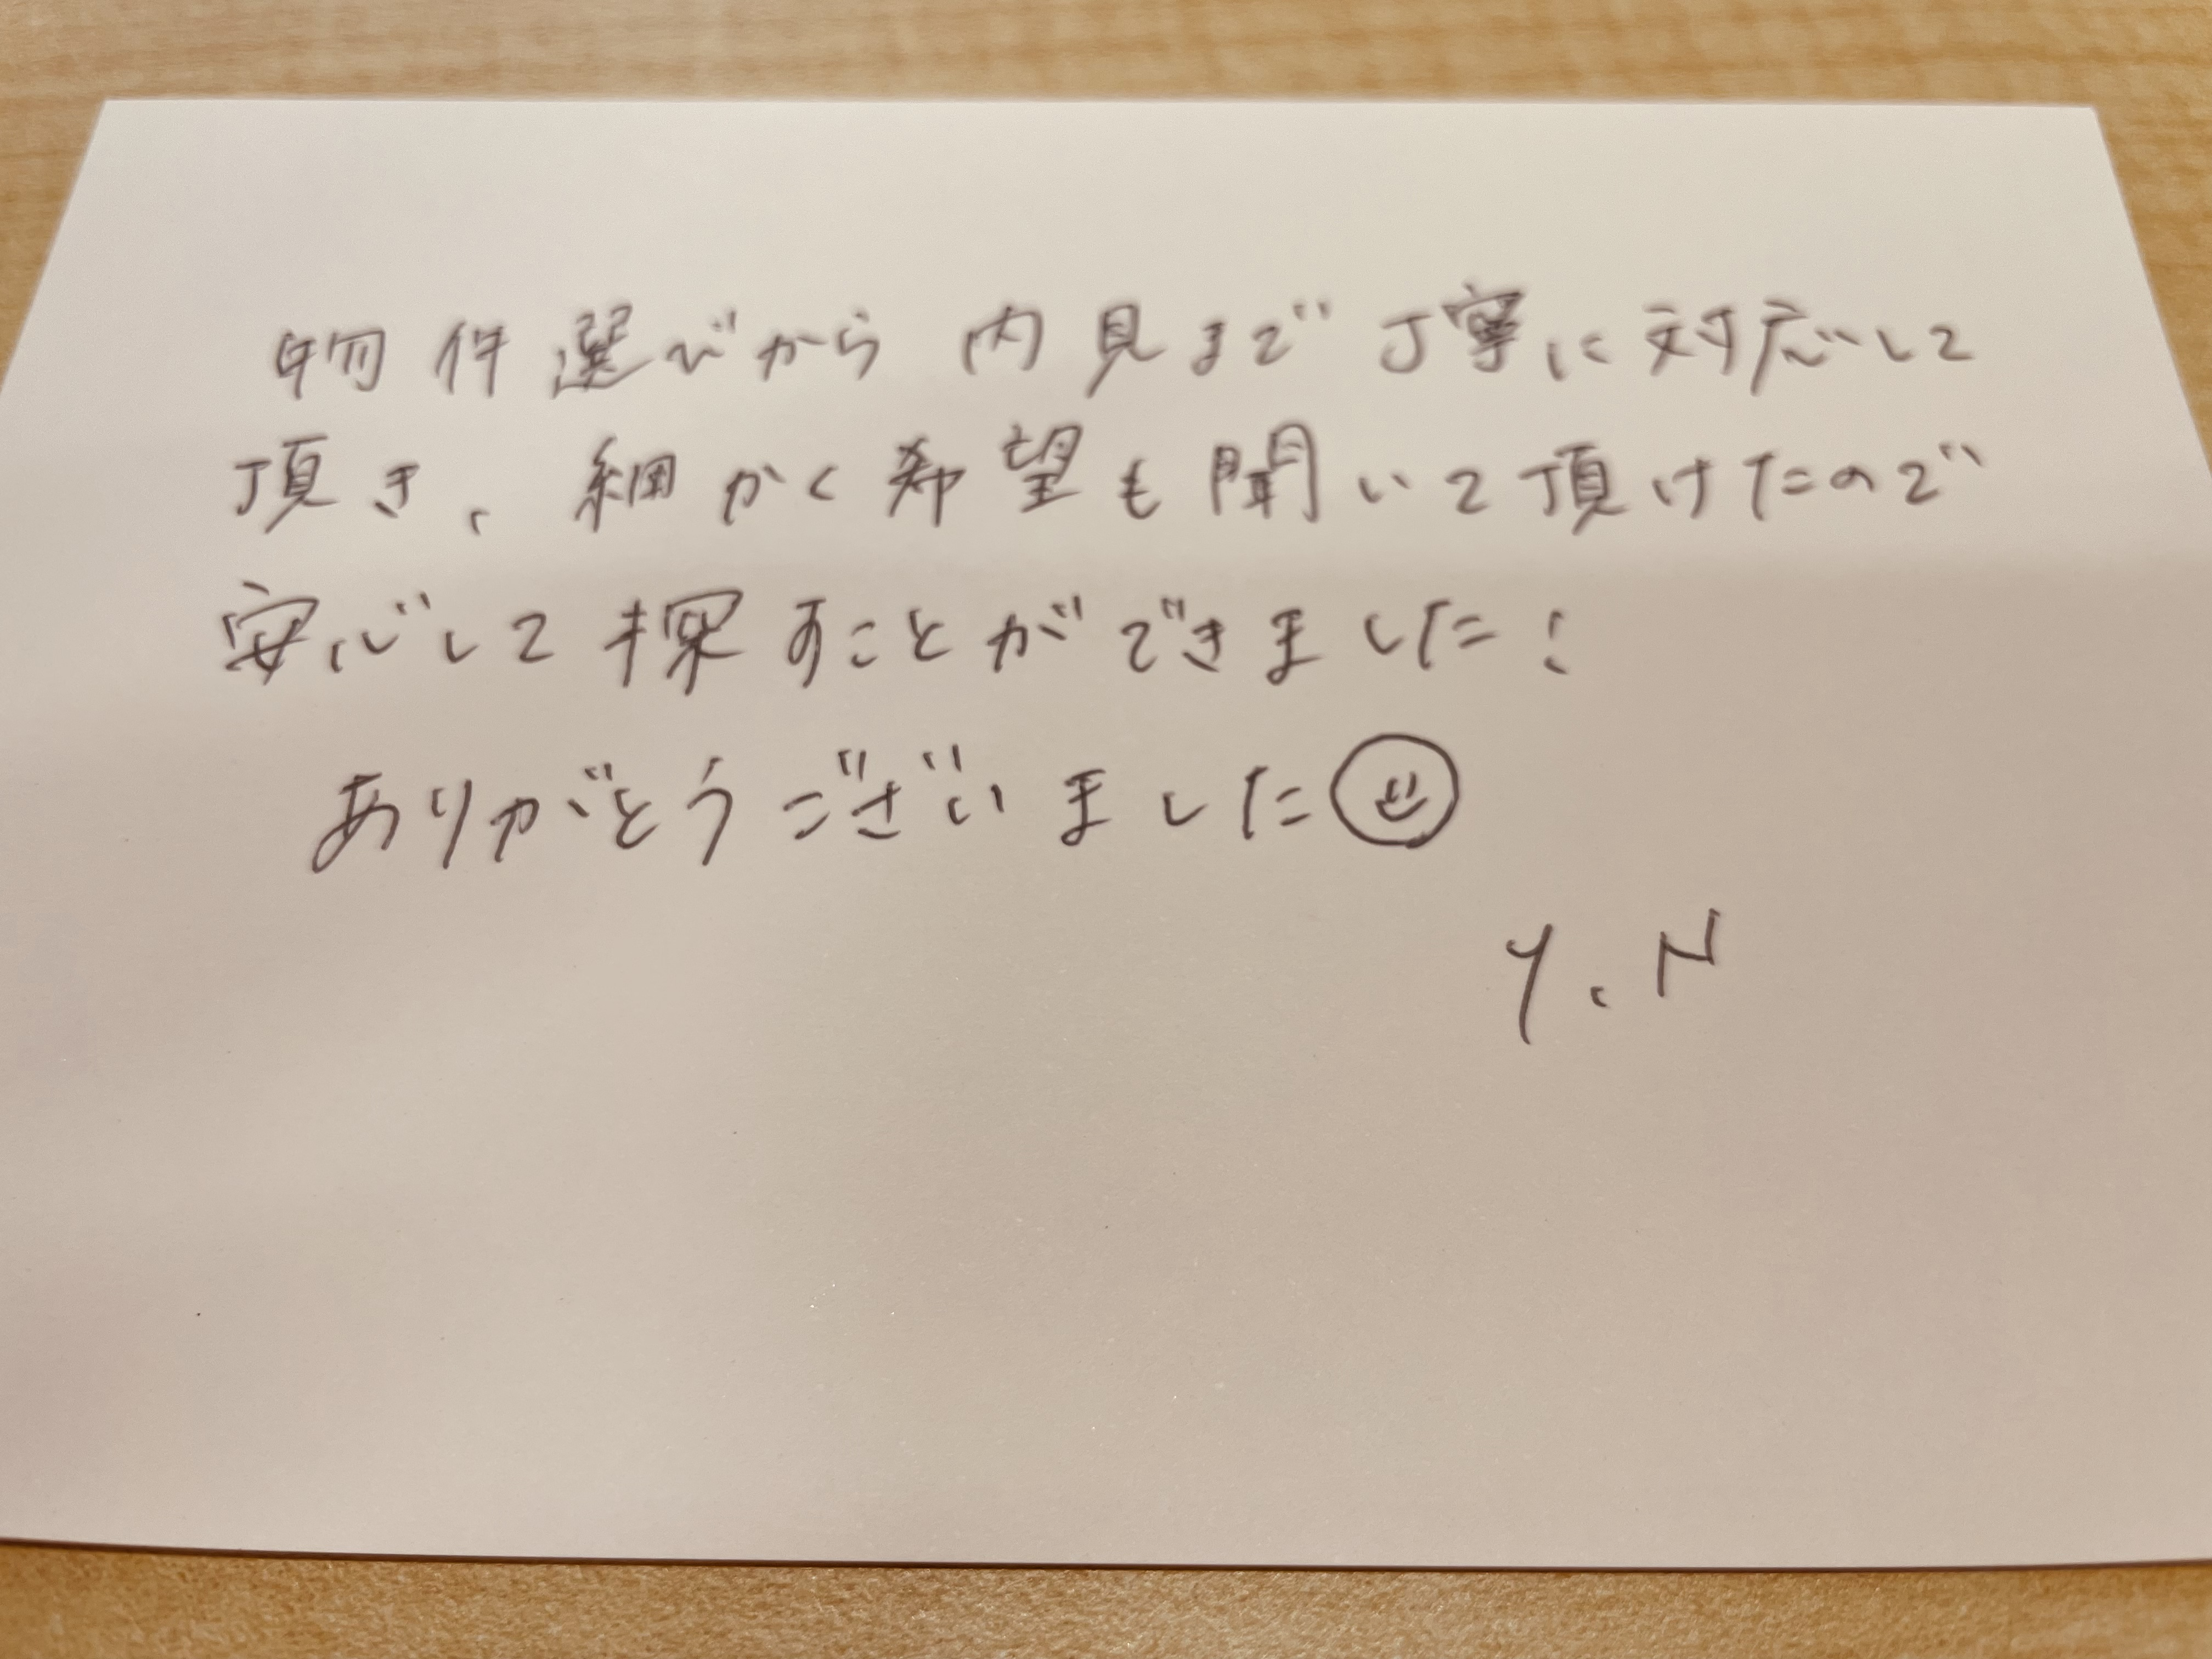 物件選びから内見まで丁寧に対応して
頂き、細かく希望も聞いて頂けたので
安心して探すことができました!
ありがとうございました
Y.N